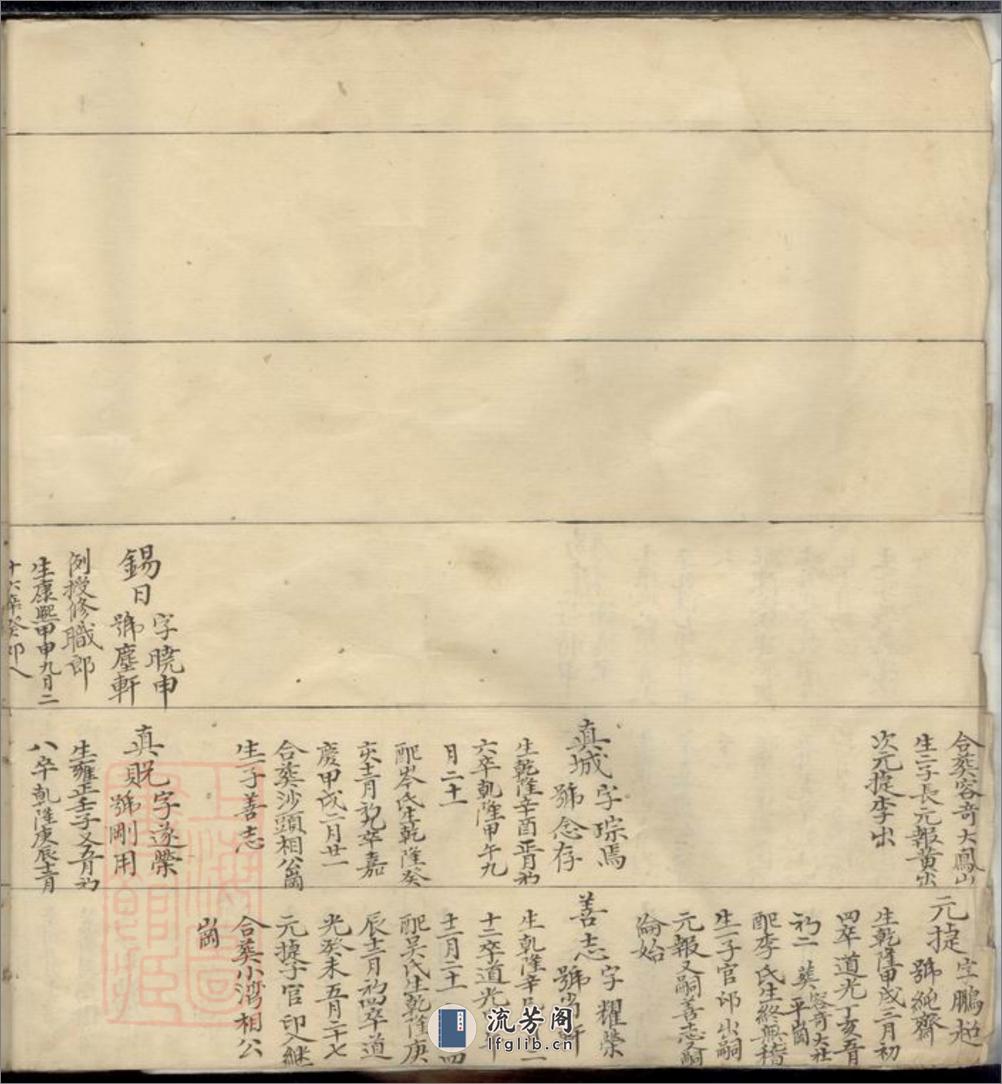 錫日 字曉申
號塵軒
例授修職郎
生康熙甲申九月二
十六卒癸卯八
合葬容奇大鳳山
生二子長元報黃出
次元㨗李出
真城 字琮焉
號念存
生乾隆辛酉正月初
六卒乾隆甲午九
月二十
配岑氏生乾隆癸
亥十一月初九卒嘉
慶甲戌二月廿一
合葬沙頭相公崗
生一子善志
真貺 字遂榮
號剛用
生雍正壬子又五月初
八卒乾隆庚辰十二月
元㨗 字鵬起
號純齋
生乾隆甲戌三月初
四卒道光丁亥五月
初二葬容奇大社
平崗
配李氏生終無稽
生一子官印出嗣
元報又嗣善志嗣
論始
善志 字耀榮
號尚軒
生乾隆辛
十二卒道光
十二月二十四
配吳氏生乾隆庚
辰十二月初四卒道
光癸未五月二十七
元㨗子官印入繼
合葬小灣相公
崗
流芳阁
lfglib.cn